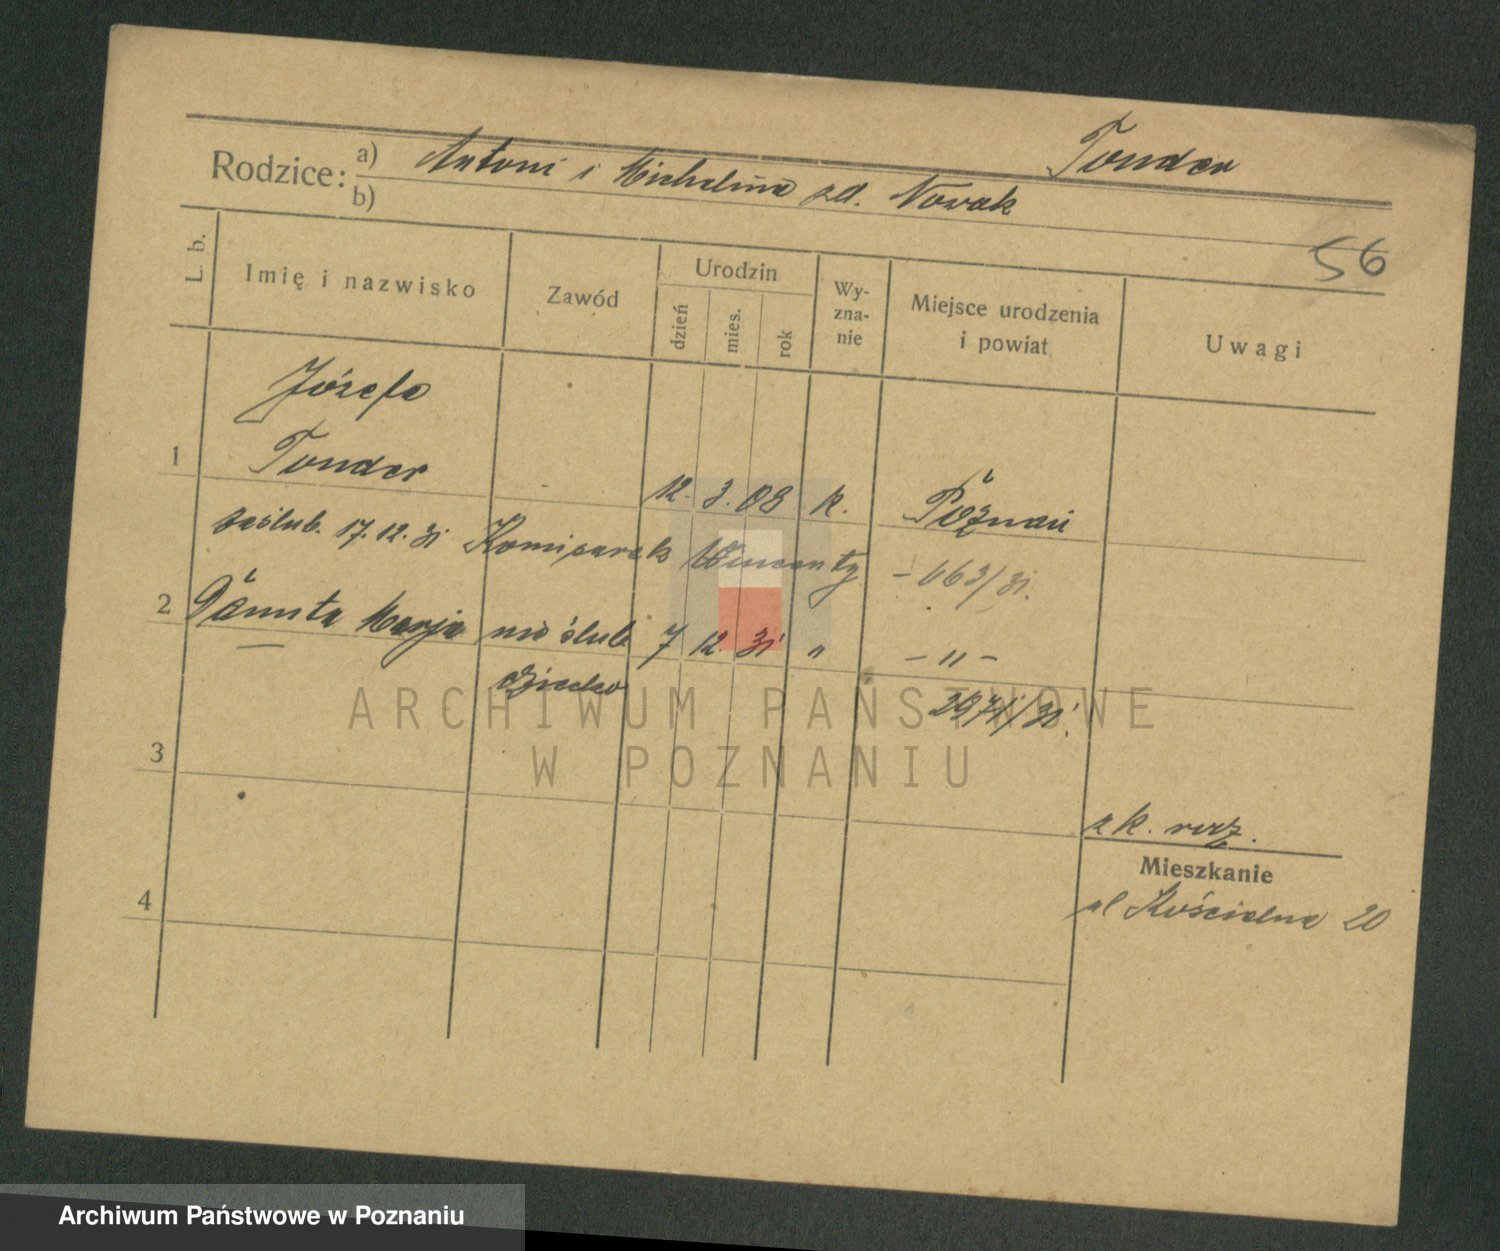 Tonder
Rodzice: a) Antoni i Michalina zd. Nowak
b)
56
L. b.
Imię i nazwisko
Zawód
Urodzin
dzień
mies.
rok
Wy-
zna-
nie
Miejsce urodzenia
i powiat
Uwagi
Józefa
1 Tonder 12. 3. 08 k. Poznań
zaślub. 17. 12. 31 Komisarek Wincenty - 663/31.
2 Danuta Marja nieślub. 7 12. 31 " - " -
dziecko 2971/31.
3
z k. rodz.
Mieszkanie
ul Kościelna 20
4
ARCHIWUM PAŃSTWOWE
W POZNANIU
Archiwum Państwowe w Poznaniu